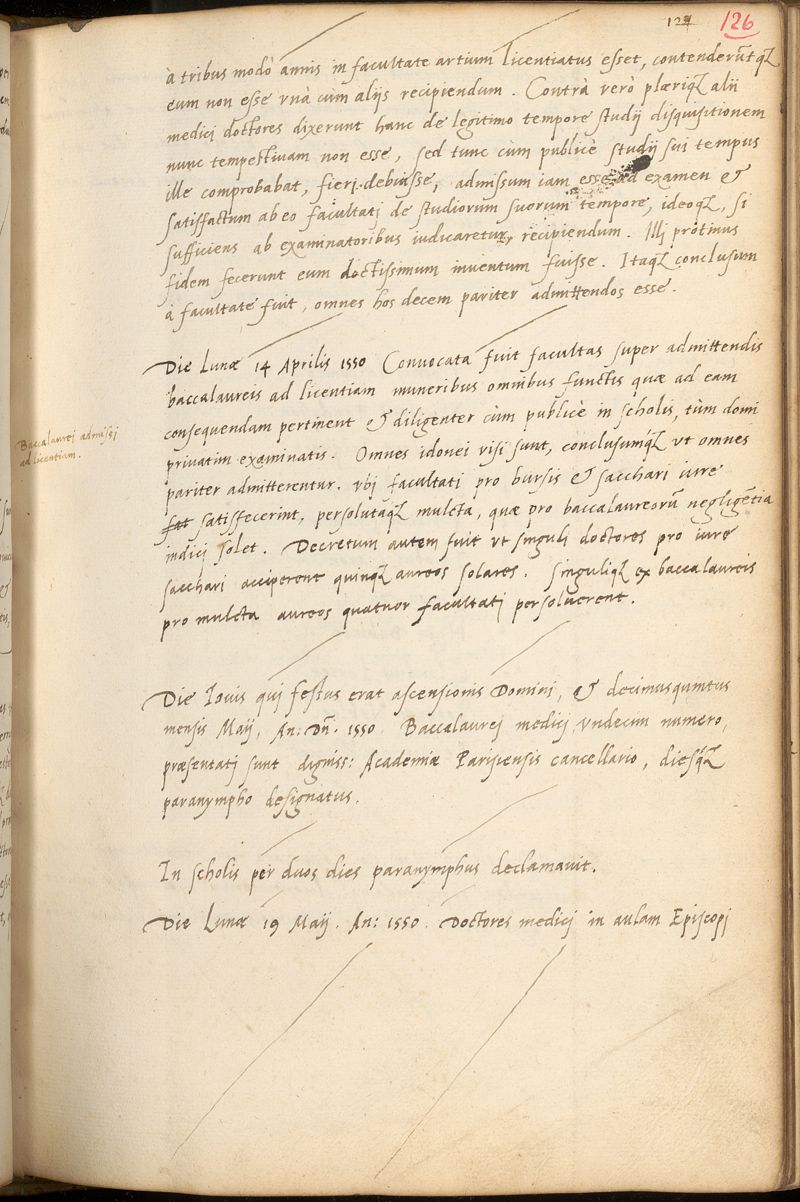 124 126
à tribus modò annis in facultate artium licentiatus esset, contenderūtq́
eum non esse vnà cùm alijs recipiendum. Contrà verò plæriq́ alii
medici doctores dixerunt hanc de legitimo tempore studij disquisitionem
nunc tempestiuam non esse, sed tunc cùm publicè studij sui tempus
ille comprobabat, fieri debuisse, admissum iam esse ad examen &
satisfactum ab eo facultati de studiorum suorum tempore, ideoq́, si
sufficiens ab examinatoribus iudicaretur, recipiendum. Illi protinus
fidem fecerunt eum doctissimum inuentum fuisse. Itaq́ conclusum
à facultate fuit, omnes hos decem pariter admittendos esse.
Die Lunæ 14 Aprilis 1550 Conuocata fuit facultas super admittendis
baccalaureis ad licentiam muneribus omnibus functis quæ ad eam
consequendam pertinent & diligenter cùm publicè in scholis, tùm domi
Baccalaurej admissj
ad licentiam.
priuatim examinatis. Omnes idonei visi sunt, conclusumq́ vt omnes
pariter admitterentur. vbj facultati pro bursis & sacchari iure
fat satisfecerint, persolutaq́ mulcta, quæ pro baccalaureorū negligētia
indicj solet. Decretum autem fuit vt singuli doctores pro iure
sacchari acciperent quinq́ aureos solares. Singuliq́ ex baccalaureis
pro mulcta aureos quatuor facultatj persoluerent.
Die Iouis quj festus erat ascensionis Domini, & decimusquintus
mensis Maij, An: Dn̄. 1550 Baccalaurej medicj vndecim numero,
præsentatj sunt digniss: Academiæ Parisiensis cancellario, diesq́
paranympho designatus.
In scholis per duos dies paranymphus declamauit.
Die Lunæ 19 Maij. An: 1550. Doctores medicj in aulam Episcopj